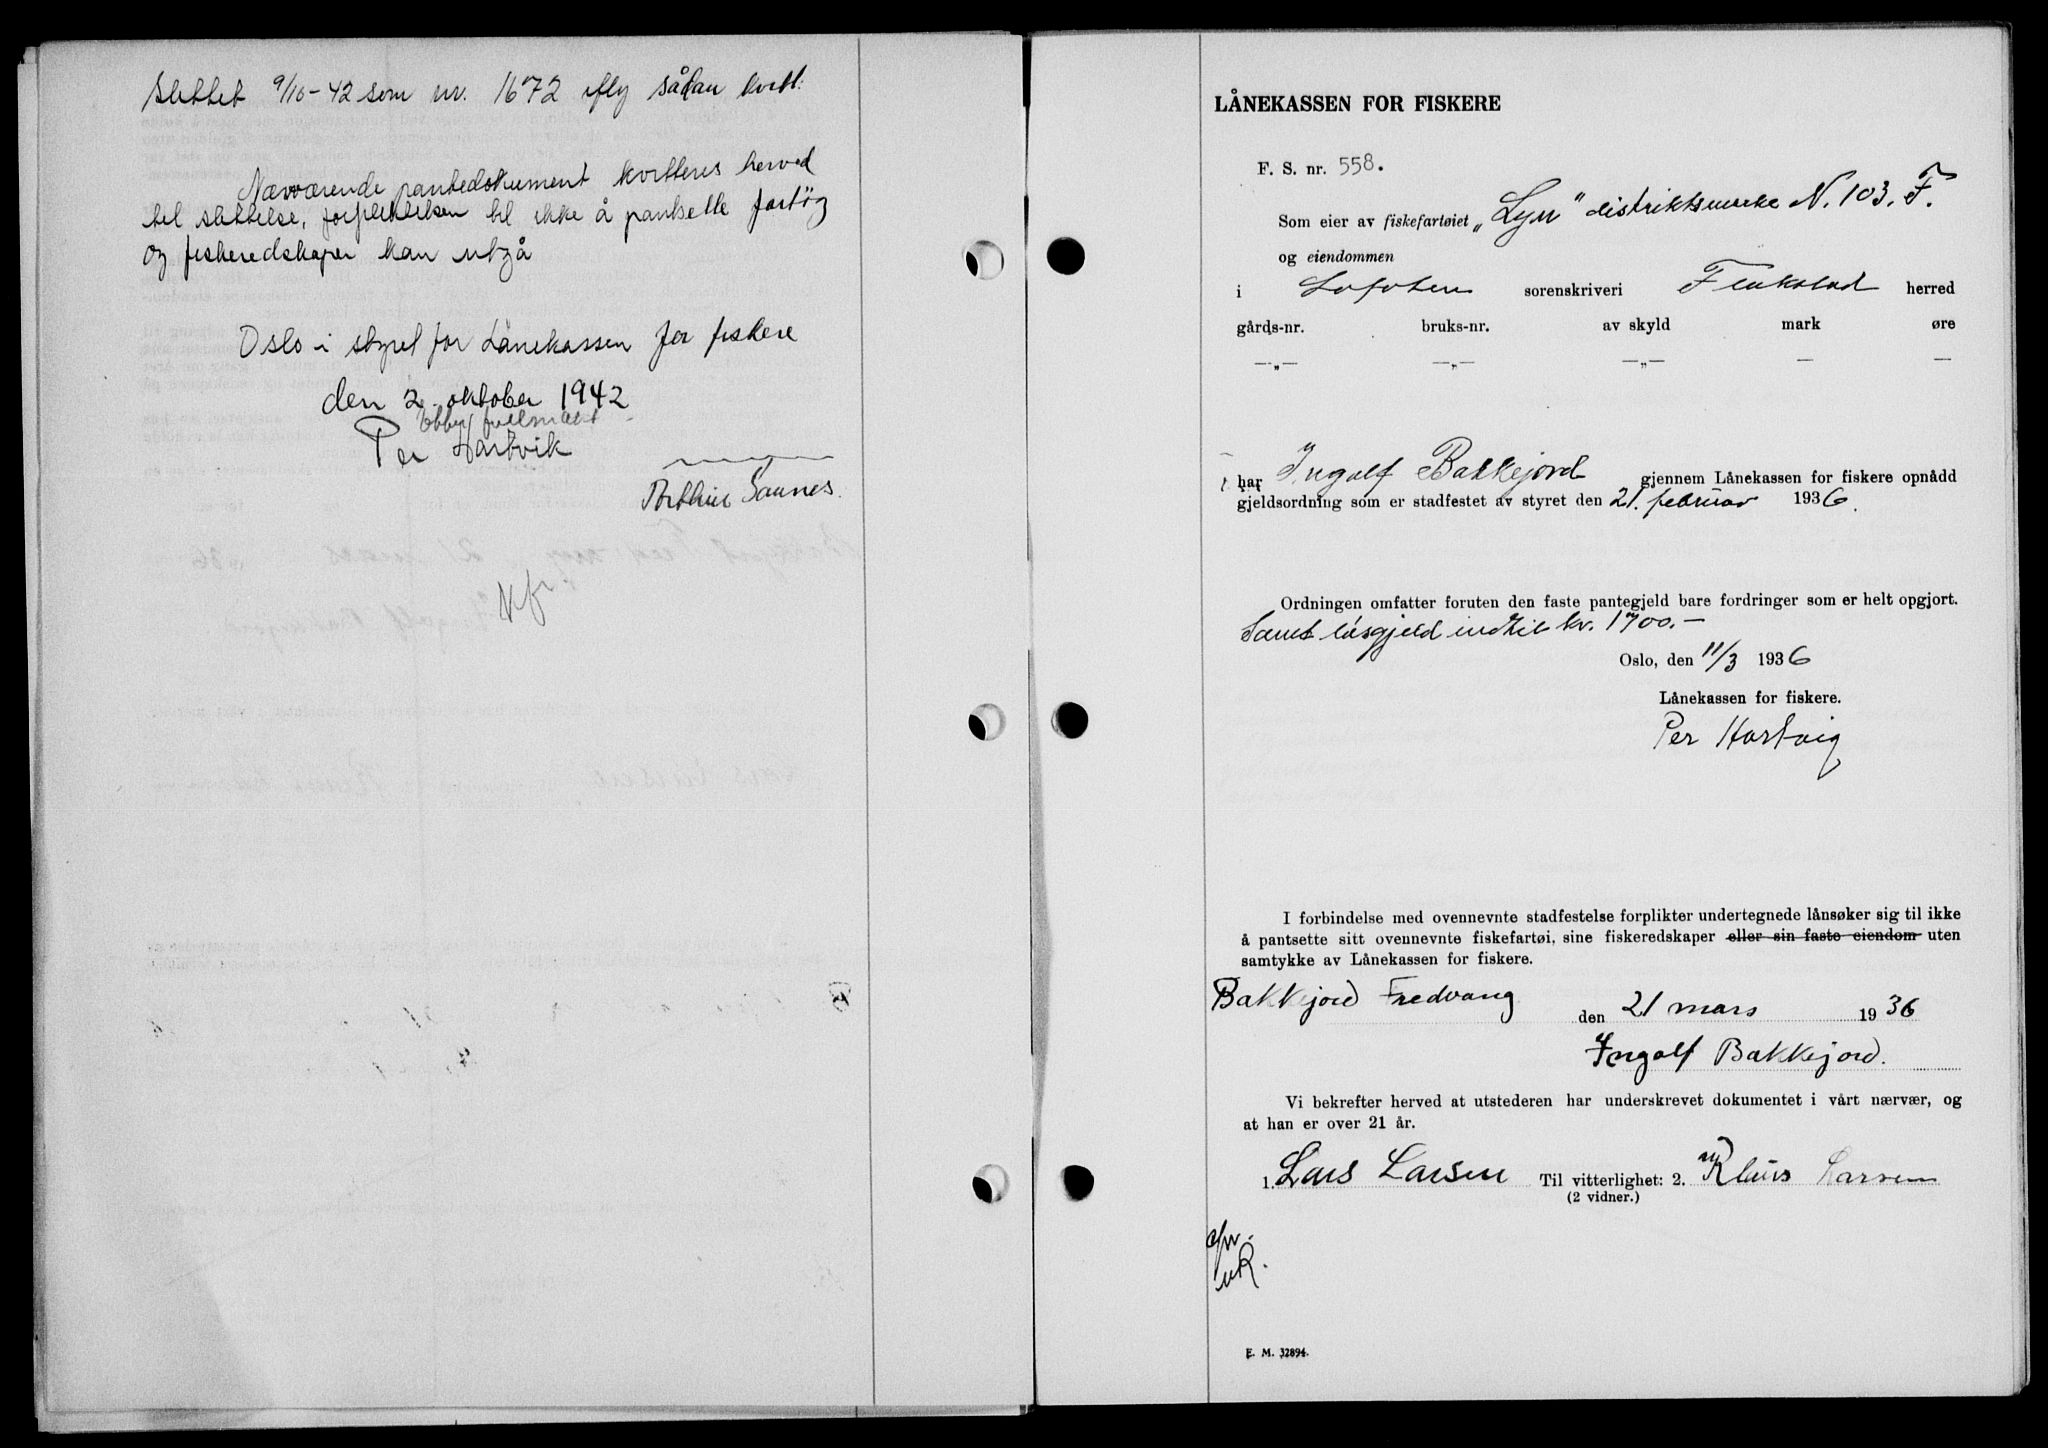 Slettet 9/10-42 som nr. 1672 iflg sådan kvitt:
Nærværende pantedokument kvitteres herved
til slettelse, forpliktelsen til ikke å pantsette fartøg
og fiskeredskaper kan utgå
Oslo i styret for Lånekassen for fiskere
den 2. oktober 1942
Per Hartvik
LÅNEKASSEN FOR FISKERE
F. S. nr. 558.
Som eier av fiskefartøiet „Lyn" distriktsmerke N. 103. F.
og eiendommen
i Lofoten sorenskriveri Flakstad herred
gårds-nr. bruks-nr. av skyld mark øre
—„— —„— —„— — —
har Ingolf Bakkejord gjennem Lånekassen for fiskere opnådd
gjeldsordning som er stadfestet av styret den 21. februar 1936.
Ordningen omfatter foruten den faste pantegjeld bare fordringer som er helt opgjort.
Samt løsgjeld inntil kr. 1700.—
Oslo, den 11/3 1936
Lånekassen for fiskere.
Per Hartvig
I forbindelse med ovennevnte stadfestelse forplikter undertegnede lånsøker sig til ikke
å pantsette sitt ovennevnte fiskefartøi, sine fiskeredskaper eller sin faste eiendom uten
samtykke av Lånekassen for fiskere.
Bakkejord Fredvang den 21 mars 1936
Ingolf Bakkejord.
Vi bekrefter herved at utstederen har underskrevet dokumentet i vårt nærvær, og
at han er over 21 år.
1. Lars Larsen Til vitterlighet: 2. Klaus Larsen
(2 vidner.)
E. M. 32894.